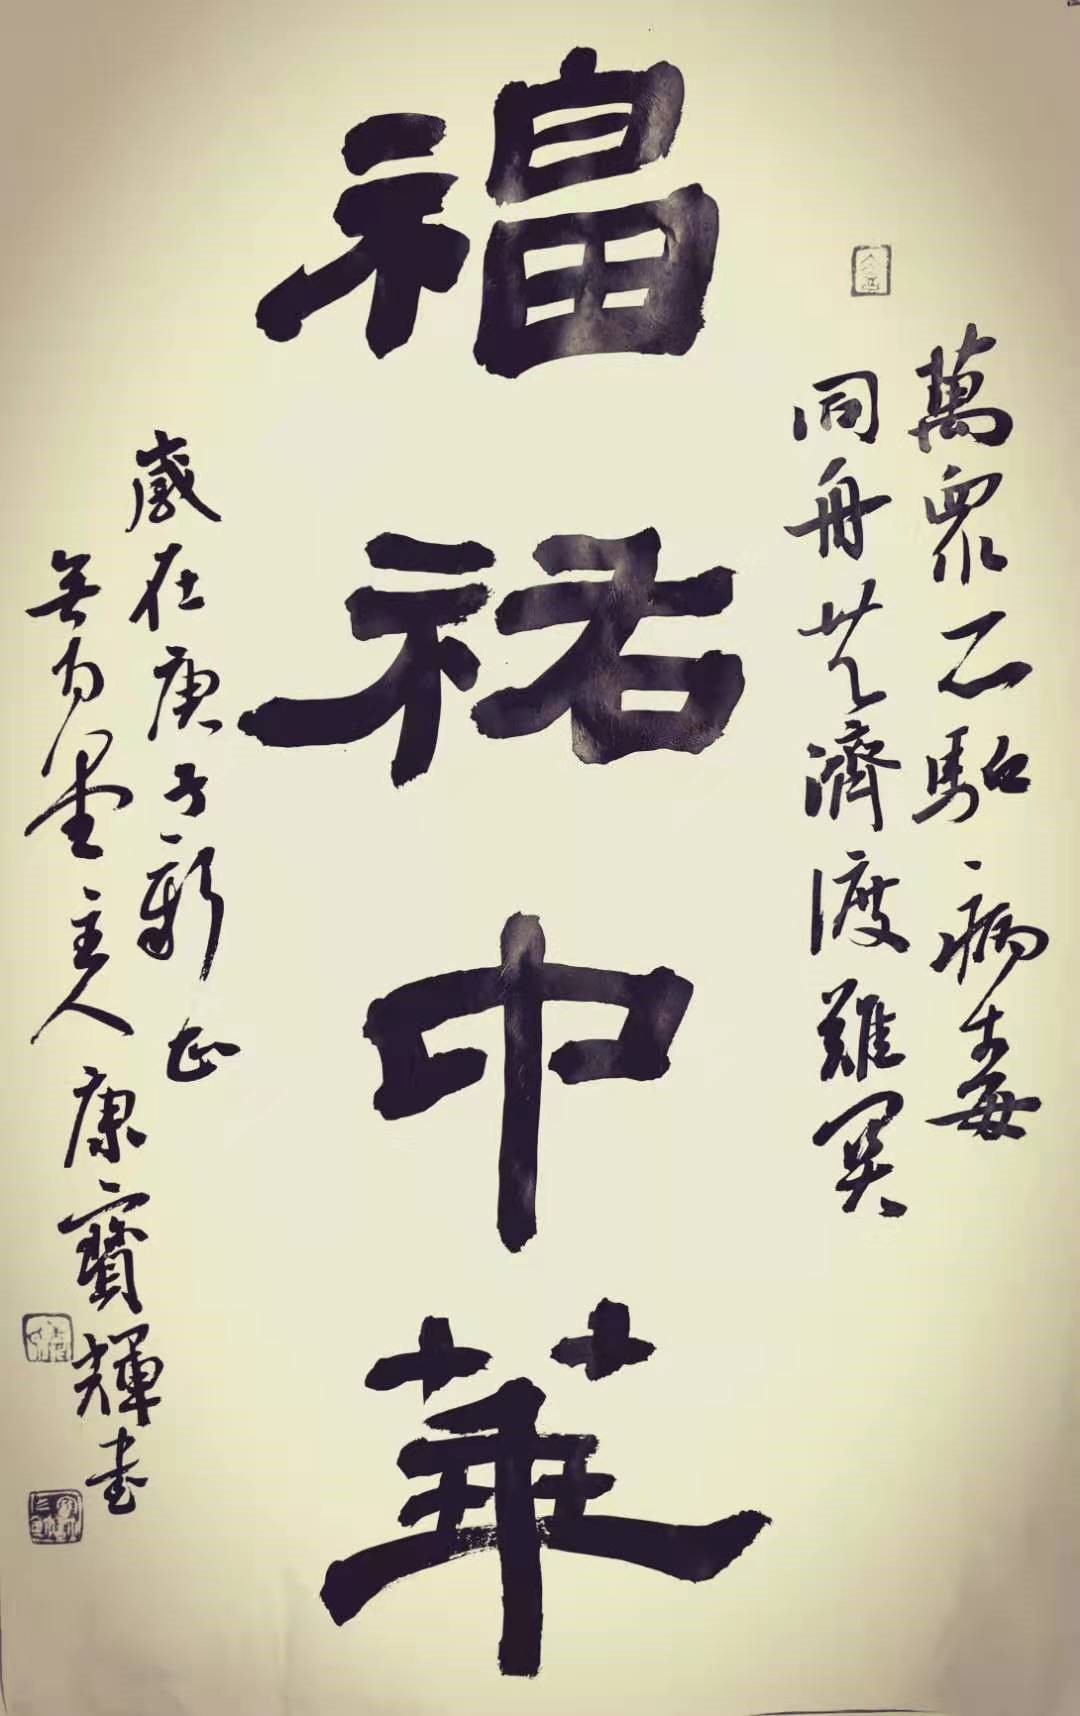 萬眾一心驅病毒
同舟共濟渡難關
福祐中華
歲在庚子新正
無为堂主人康寶輝書